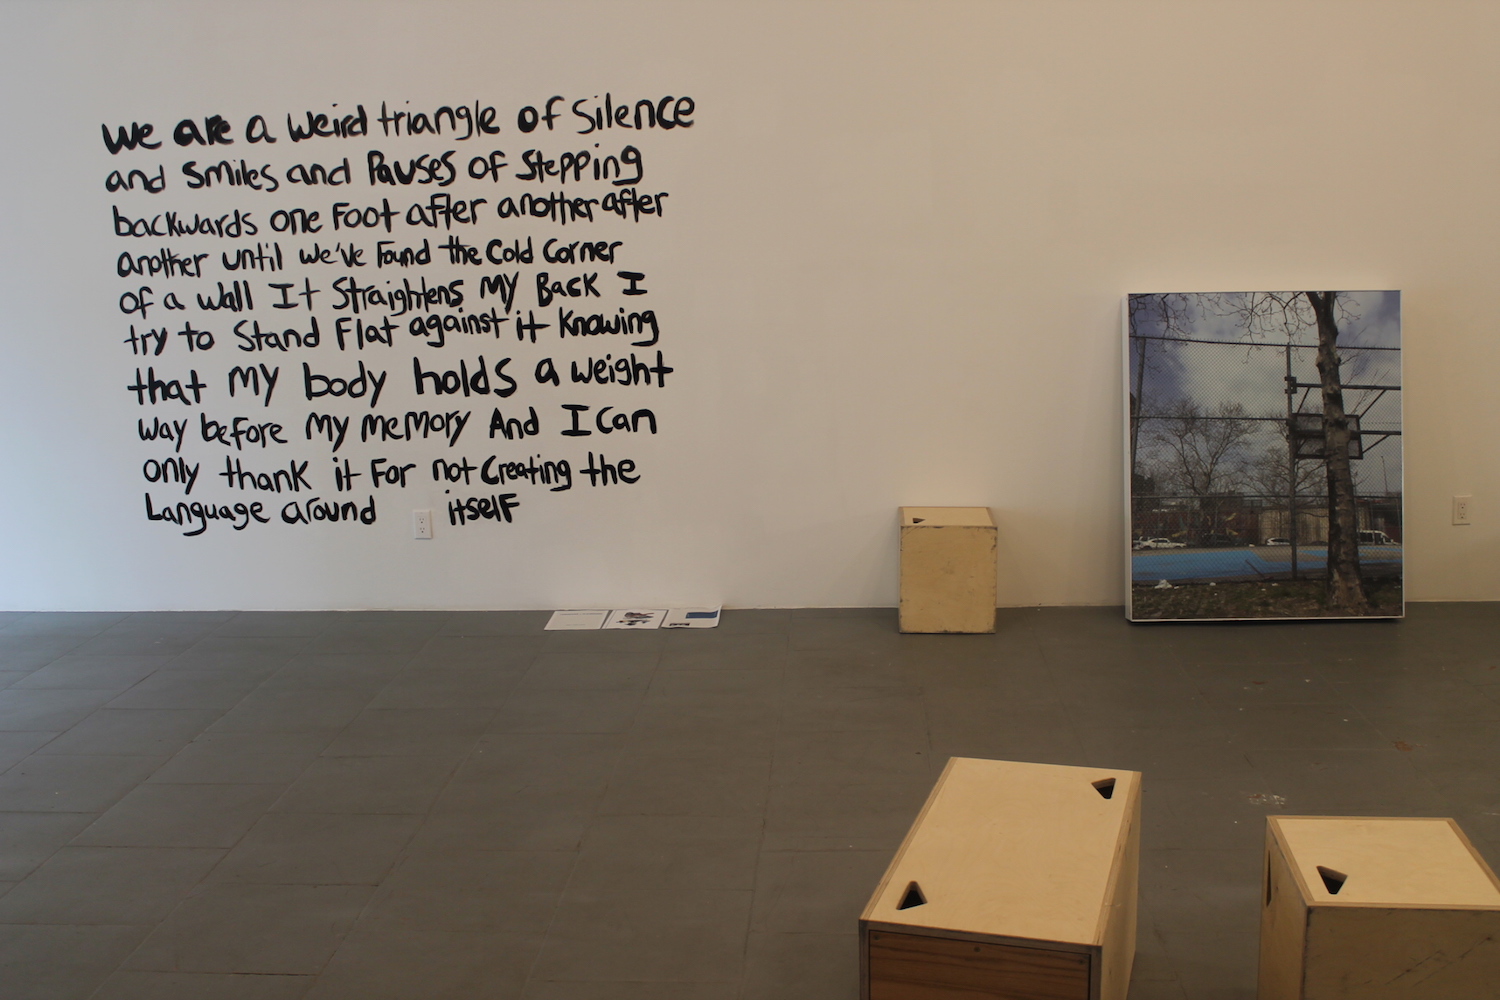 we are a weird triangle of Silence
and Smiles and Pauses of Stepping
backwards one Foot after another after
another until we've Found the Cold Corner
of a wall It Straightens My Back I
try to Stand Flat against it Knowing
that My body holds a weight
way before My Memory And I Can
only thank it For not Creating the
Language around itself